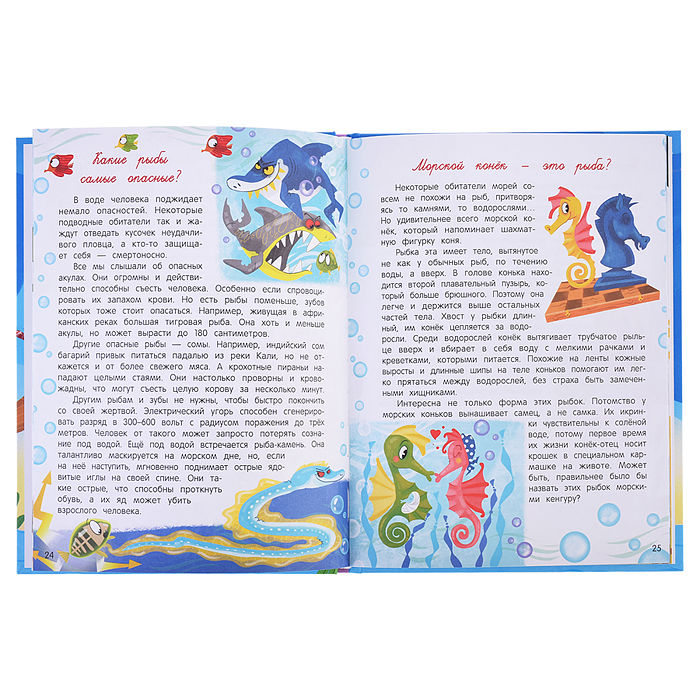 Какие рыбы
самые опасные?
В воде человека поджидает
немало опасностей. Некоторые
подводные обитатели так и жа-
ждут отведать кусочек неудачли-
вого пловца, а кто-то защища-
ет себя — смертоносно.
Все мы слышали об опасных
акулах. Они огромны и действи-
тельно способны съесть человека. Особенно если спровоци-
ровать их запахом крови. Но есть рыбы поменьше, зубов
которых тоже стоит опасаться. Например, живущая в аф-
риканских реках большая тигровая рыба. Она хоть и меньше
акулы, но может вырасти до 180 сантиметров.
Другие опасные рыбы — сомы. Например, индийский сом
багарий привык питаться падалью из реки Кали, но не от-
кажется и от более свежего мяса. А крохотные пираньи на-
падают целыми стаями. Они настолько проворны и крово-
жадны, что могут съесть целую корову за несколько минут.
Другим рыбам и зубы не нужны, чтобы быстро покончить
со своей жертвой. Электрический угорь способен сгенери-
ровать разряд в 300–600 вольт с радиусом поражения до трёх
метров. Человек от такого может запросто потерять созна-
ние под водой. Ещё под водой встречается рыба-камень. Она
талантливо маскируется на морском дне, но, если
на неё наступить, мгновенно поднимает острые ядо-
витые иглы на своей спине. Они та-
кие острые, что способны проткнуть
обувь, а их яд может убить
взрослого человека.
24
Морской конёк – это рыба?
Некоторые обитатели морей со-
всем не похожи на рыб, притворя-
ясь то камнями, то водорослями...
Но удивительнее всего морской ко-
нёк, который напоминает шахмат-
ную фигурку коня.
Рыбка эта имеет тело, вытянутое
не как у обычных рыб, по течению
воды, а вверх. В голове конька нахо-
дится второй плавательный пузырь, ко-
торый больше брюшного. Поэтому она
легче и держится выше остальных
частей тела. Хвост у рыбки длин-
ный, им конёк цепляется за водо-
росли. Среди водорослей конёк вытягивает трубчатое рыль-
це вверх и вбирает в себя воду с мелкими рачками и
креветками, которыми питается. Похожие на ленты кожные
выросты и длинные шипы на теле коньков помогают им лег-
ко прятаться между водорослей, без страха быть замечен-
ными хищниками.
Интересна не только форма этих рыбок. Потомство у
морских коньков вынашивает самец, а не самка. Их икрин-
ки чувствительны к солёной
воде, потому первое время
их жизни конёк-отец носит
крошек в специальном кар-
машке на животе. Может
быть, правильнее было бы
назвать этих рыбок морски-
ми кенгуру?
25